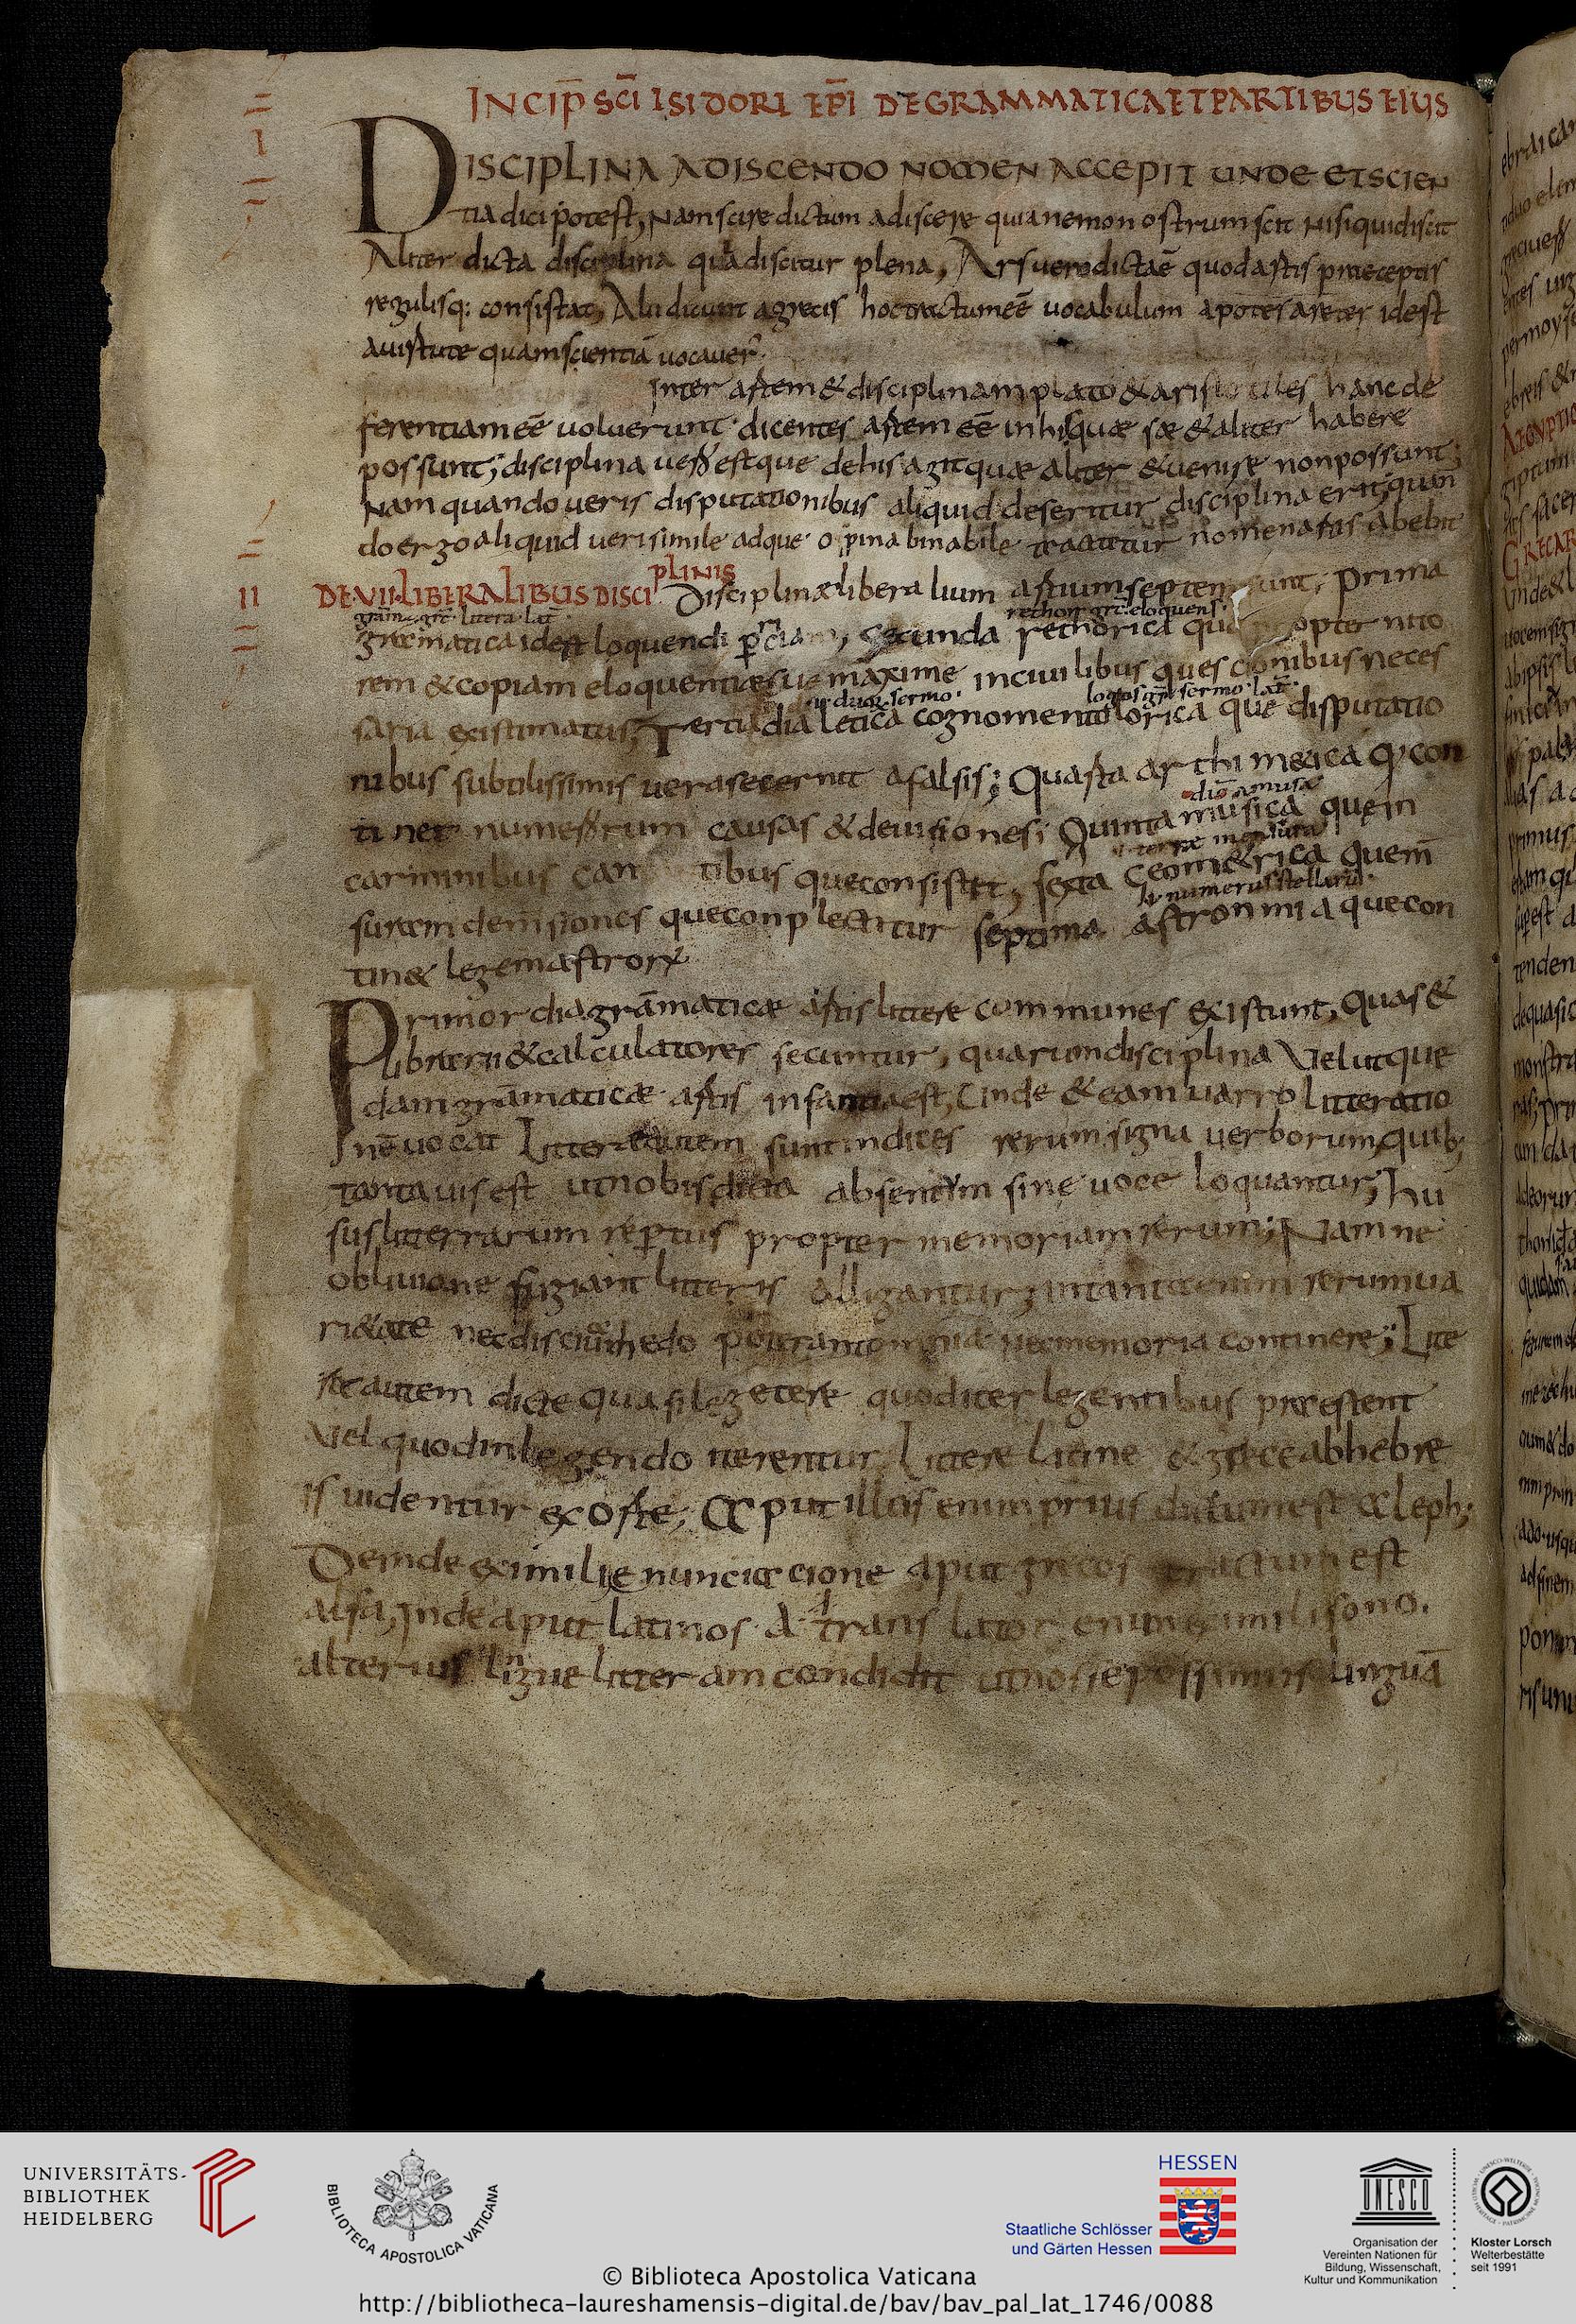 INCIP̄ SC̄I ISIDORI EP̄I DE GRAMMATICA ET PARTIBUS EIUS
DISCIPLINA A DISCENDO NOMEN ACCEPIT UNDE ET SCIEN
tia dici potest, Nam scire dictum a discere quia nemo nostrum scit nisi qui discit
Aliter dicta disciplina quia discitur plena, Ars vero dicta ē quod artis praeceptis
regulisq; consistat, Alii dicunt a grecis hoc tractum eē uocabulum apo tes aretes idest
a uirtute quam scientiā uocauer̄.
Inter artem & disciplinam plato & aristotiles hanc de
ferentiam eē uoluerunt dicentes artem eē in his quae se & aliter habere
possunt; disciplina vero est que de his agit quae aliter euenire non possunt;
Nam quando veris disputationibus aliquid deseritur disciplina erit, quan
do ergo aliquid verisimile adque opinabinabile tractatur nomen artis abebit
II DE VII LIBERALIBUS DISCI
PLINIS
Disciplinae liberalium artium septem sunt, prima
grām. grc̄. litera. lat̄
rethor grc̄ eloquens.
gramatica idest loquendi peritiam, secunda rethorica que propter nito
rem & copiam eloquentiae sue maxime in ciuilibus questionibus neces
duo sermo.
logos gr̄ sermo. lat̄.
saria existimatur, Tertia dialetica cognomento lorica que disputatio
nibus subtilissimis uera secernit a falsis; Quarta arithmetica q̨ con
dic̄ a musa
tinet numerorum causas & deuisiones; Quinta musica que in
terrae mensura
carminibus cantibus que consistit, sexta geometrica que m̄
numerus stellarū.
suram demensiones que conplectitur septima astronomia que con
tin& legem astrorū
Primordia grāmaticae artis littere communes existunt, quas &
librarii & calculatores secuntur, quarum disciplina velut que
dam grāmaticae artis infantia est, Unde & eam uarro litteratio
nē uocat Litterae autem sunt indices rerum signa verborum, quib;
tanta uis est ut nobis dicta absentium sine uoce loquantur, hu
sus litterrarum repertus propter memoriam rerum; Nam ne
obliuione fugiant litteris alligantur, in tanta enim rerum ua
ri&ate nec disci audiendo poterant omnia nec memoria contineri; Lite
re autem dicte quasi legetere quod iter legentibus prestent
vel quod in legendo iterentur. Littere latine & grece ab hebre
is uidentur exorte; Aput illos enim prius dictum est aleph;
Deinde ex simili enunciacione aput grecos tractum est
alfa, Inde aput latinos A translator enim ex simili sono.
alterius lingue litteram condidit ut nosse possimus linguā
UNIVERSITÄTS-
BIBLIOTHEK
HEIDELBERG
BIBLIOTECA APOSTOLICA VATICANA
HESSEN
Staatliche Schlösser
und Gärten Hessen
UNESCO
Organisation der
Vereinten Nationen für
Bildung, Wissenschaft,
Kultur und Kommunikation
Kloster Lorsch
Welterbestätte
seit 1991
© Biblioteca Apostolica Vaticana
http://bibliotheca-laureshamensis-digital.de/bav/bav_pal_lat_1746/0088